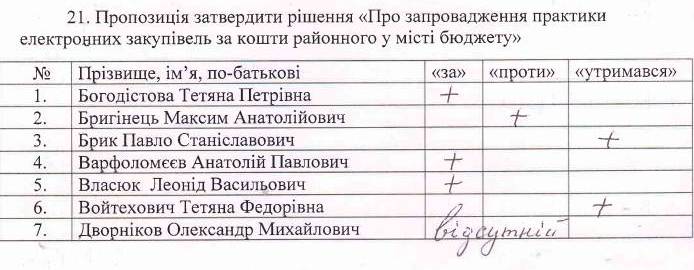 21. Пропозиція затвердити рішення «Про запровадження практики
електронних закупівель за кошти районного у місті бюджету»
№ Прізвище, ім’я, по-батькові «за» «проти» «утримався»
1. Богодістова Тетяна Петрівна +
2. Бригінець Максим Анатолійович +
3. Брик Павло Станіславович +
4. Варфоломєєв Анатолій Павлович +
5. Власюк Леонід Васильович +
6. Войтехович Тетяна Федорівна +
7. Дворніков Олександр Михайлович відсутній